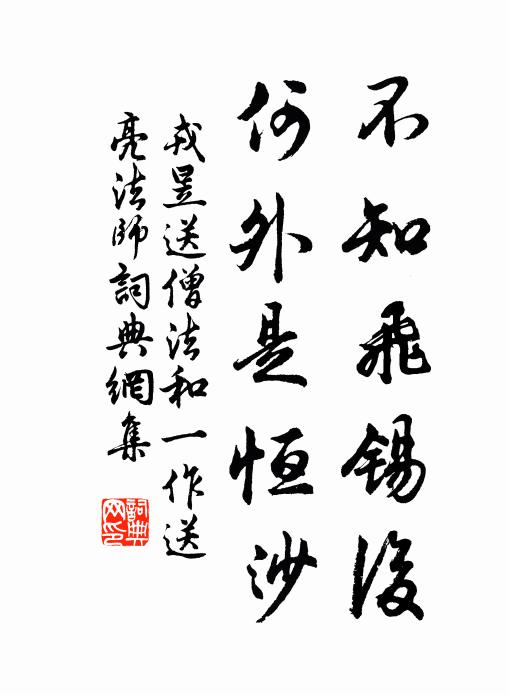 不知飛錫後
何外是恒沙
戎昱送僧法和一作送
亮法師詞典網集
詞典
网印